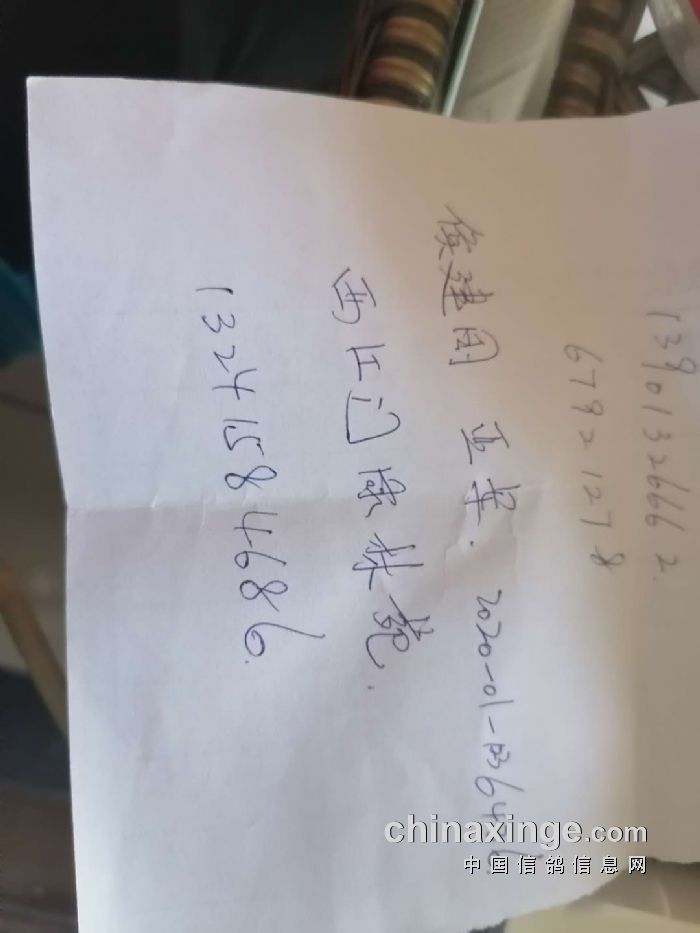 13901326662.
67921278
侯建国 亚军. 2020-01-0364
西江门康林苑.
13241584686.
chinaxinge.com
中国信鸽信息网